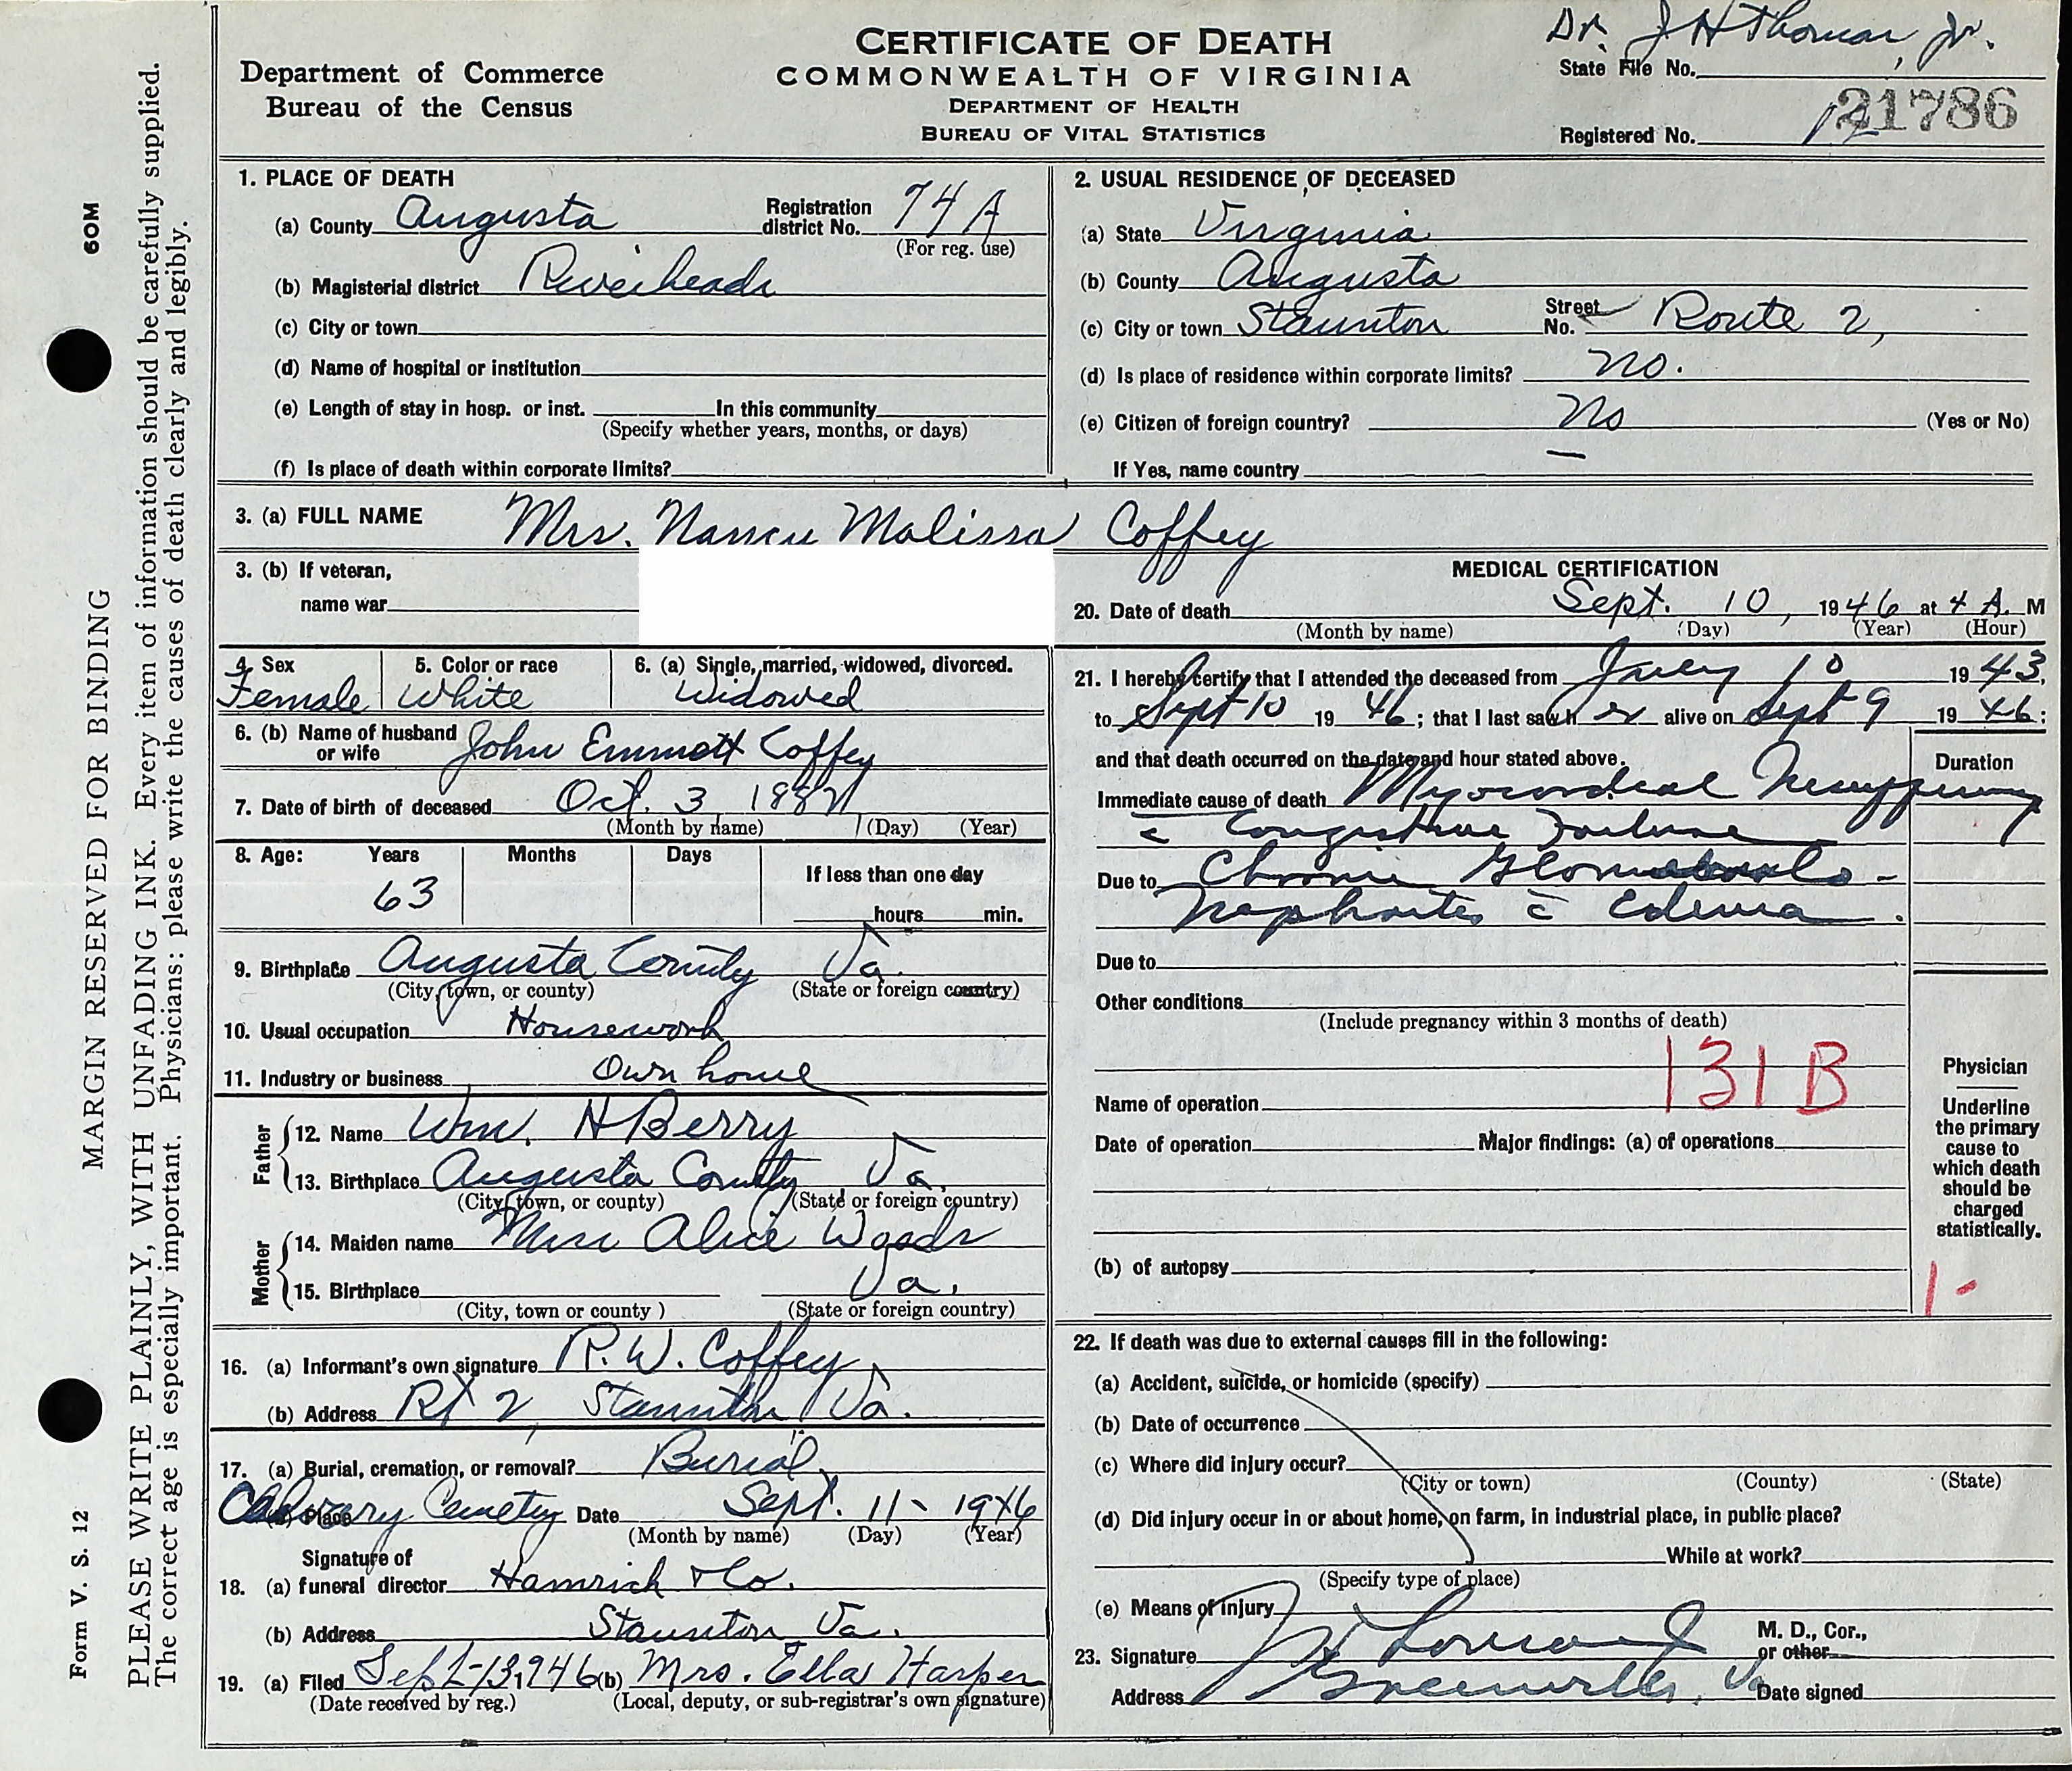 Dr. J H Thomas, Jr.
CERTIFICATE OF DEATH
COMMONWEALTH OF VIRGINIA
DEPARTMENT OF HEALTH
BUREAU OF VITAL STATISTICS
Department of Commerce
Bureau of the Census
State File No.
21786
Registered No.
MARGIN RESERVED FOR BINDING
PLEASE WRITE PLAINLY, WITH UNFADING INK. Every item of information should be carefully supplied.
The correct age is especially important. Physicians: please write the causes of death clearly and legibly.
Form V. S. 12
60M
1. PLACE OF DEATH
(a) County Augusta Registration district No. 74A
(For reg. use)
(b) Magisterial district Riverheads
(c) City or town
(d) Name of hospital or institution
(e) Length of stay in hosp. or inst. In this community
(Specify whether years, months, or days)
(f) Is place of death within corporate limits?
2. USUAL RESIDENCE OF DECEASED
(a) State Virginia
(b) County Augusta
(c) City or town Staunton Street No. Route 2,
(d) Is place of residence within corporate limits? no.
(e) Citizen of foreign country? No (Yes or No)
If Yes, name country —
3. (a) FULL NAME Mrs. Nancy Malissa Coffey
3. (b) If veteran,
name war
4. Sex 5. Color or race 6. (a) Single, married, widowed, divorced.
Female White Widowed
6. (b) Name of husband or wife John Emmett Coffey
7. Date of birth of deceased Oct. 3
(Month by name) (Day) (Year)
8. Age: Years Months Days If less than one day
63
hours min.
9. Birthplace Augusta County Va.
(City, town, or county) (State or foreign country)
10. Usual occupation Housework
11. Industry or business Own home
Father
12. Name Wm. H Berry
13. Birthplace Augusta County Va.
(City, town, or county) (State or foreign country)
Mother
14. Maiden name Alice Woods
15. Birthplace Va.
(City, town or county ) (State or foreign country)
16. (a) Informant's own signature R. W. Coffey
(b) Address Rt 2, Staunton Va.
17. (a) Burial, cremation, or removal? Burial
(b) Place Calvary Cemetery Date Sept. 11 - 1946
(Month by name) (Day) (Year)
Signature of
18. (a) funeral director Hamrick & Co.
(b) Address Staunton Va.
19. (a) Filed Sept-13, 1946 (b) Mrs. Ella Harper
(Date received by reg.) (Local, deputy, or sub-registrar's own signature)
MEDICAL CERTIFICATION
20. Date of death Sept. 10, 1946 at 4 A. M
(Month by name) (Day) (Year) (Hour)
21. I hereby certify that I attended the deceased from July 10 1943,
to Sept 10 1946; that I last saw her alive on Sept 9 1946:
and that death occurred on the date and hour stated above.
Duration
Immediate cause of death Myocardial
c̄ Congestive Failure
Due to Chronic Glomerulo-
Nephritis c̄ Edema.
Due to
Other conditions
(Include pregnancy within 3 months of death)
131 B
Name of operation
Date of operation Major findings: (a) of operations
(b) of autopsy
Physician
Underline
the primary
cause to
which death
should be
charged
statistically.
1-
22. If death was due to external causes fill in the following:
(a) Accident, suicide, or homicide (specify)
(b) Date of occurrence
(c) Where did injury occur?
(City or town) (County) (State)
(d) Did injury occur in or about home, on farm, in industrial place, in public place?
While at work?
(Specify type of place)
(e) Means of injury
23. Signature J H Thomas Jr M. D., Cor., or other
Address Greenville, Va Date signed